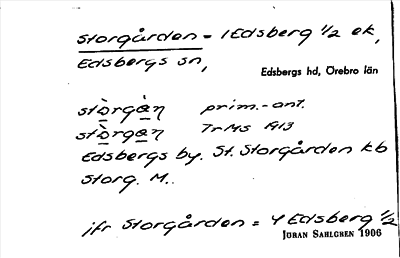 Storgården = 1 Edsberg 1/2 ek,
Edsbergs sn,
Edsbergs hd, Örebro län
stòrgàn prim.-ant.
stòrgan TrMs 1913
Edsbergs by. St. Storgården kb
Storg. M..
jfr Storgården = 4 Edsberg 1/2
JÖRAN SAHLGREN 1906